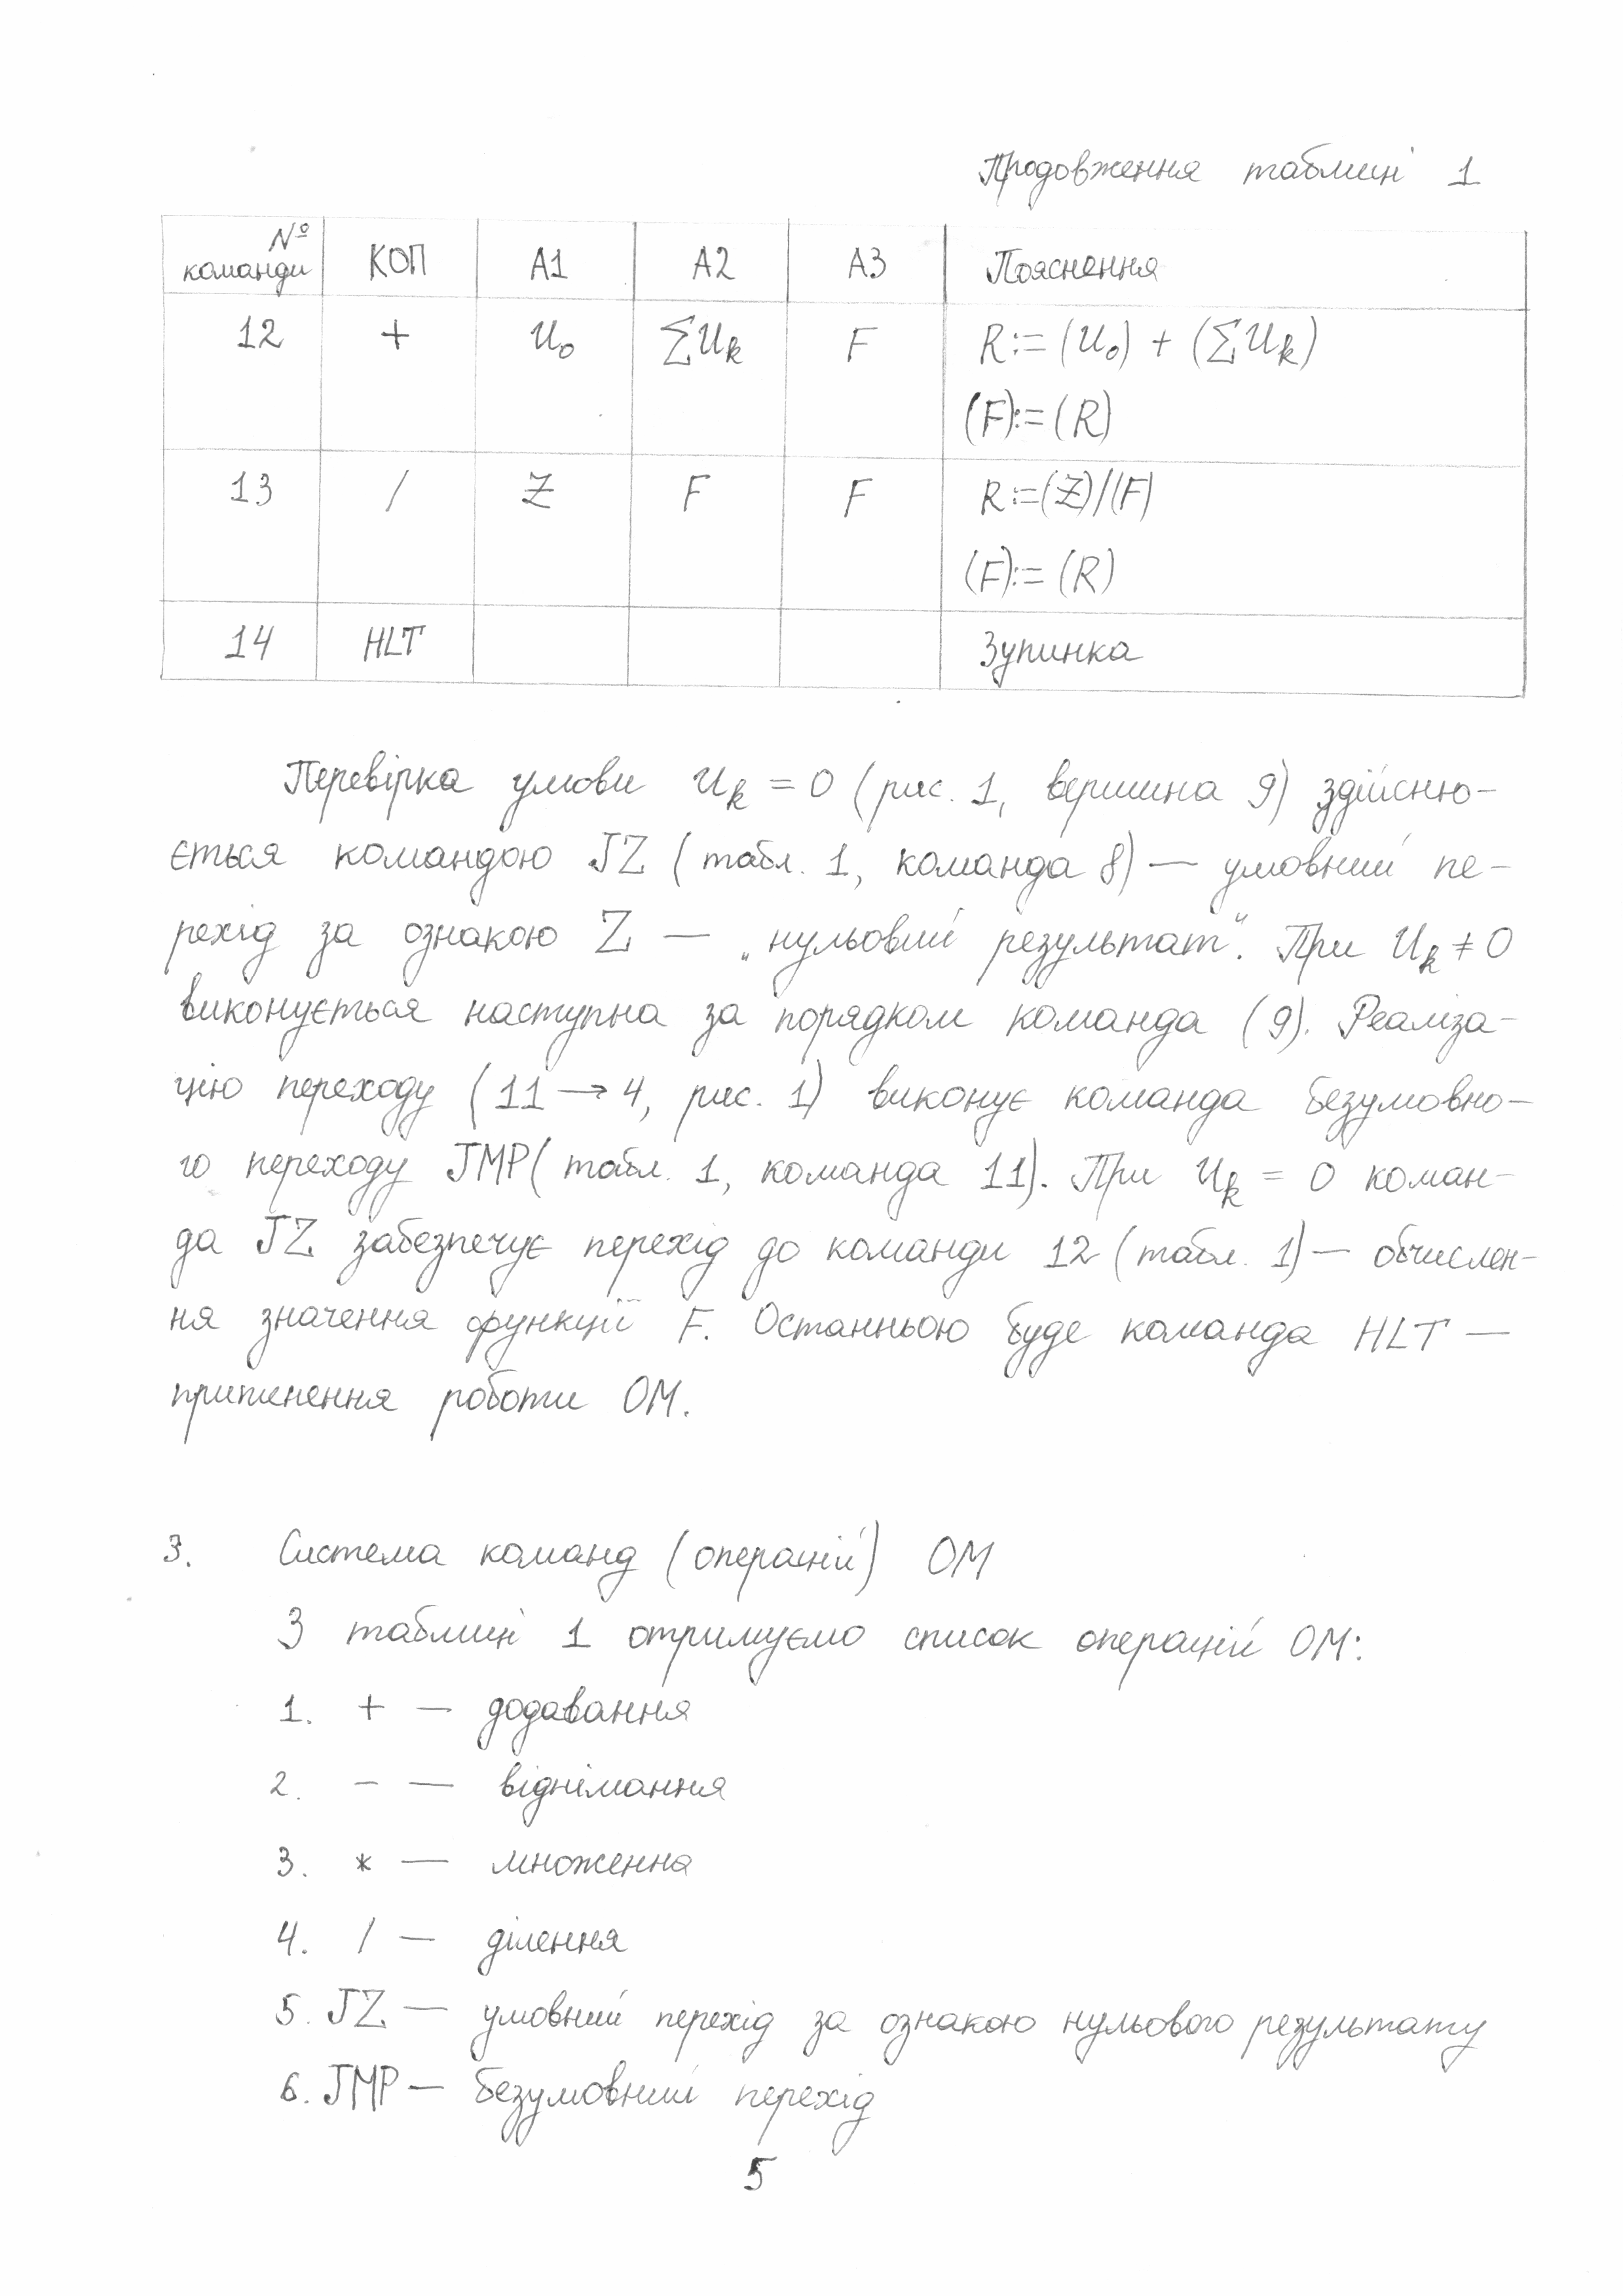 Продовження таблиці 1
№ команди КОП А1 А2 А3 Пояснення
12 + U₀ ∑Uₖ F R:=(U₀) + (∑Uₖ)
(F):=(R)
13 / Z F F R:=(Z)/(F)
(F):=(R)
14 HLT Зупинка
Перевірка умови Uₖ = 0 (рис. 1, вершина 9) здійсню-
ється командою JZ (табл. 1, команда 8) — умовний пе-
рехід за ознакою Z — „нульовий результат“. При Uₖ ≠ 0
виконується наступна за порядком команда (9). Реаліза-
цію переходу (11 → 4, рис. 1) виконує команда безумовно-
го переходу JMP (табл. 1, команда 11). При Uₖ = 0 коман-
да JZ забезпечує перехід до команди 12 (табл. 1) — обчислен-
ня значення функції F. Останньою буде команда HLT —
припинення роботи ОМ.
3. Система команд (операцій) ОМ
З таблиці 1 отримуємо список операцій ОМ:
1. + — додавання
2. - — віднімання
3. * — множення
4. / — ділення
5. JZ — умовний перехід за ознакою нульового результату
6. JMP — безумовний перехід
5